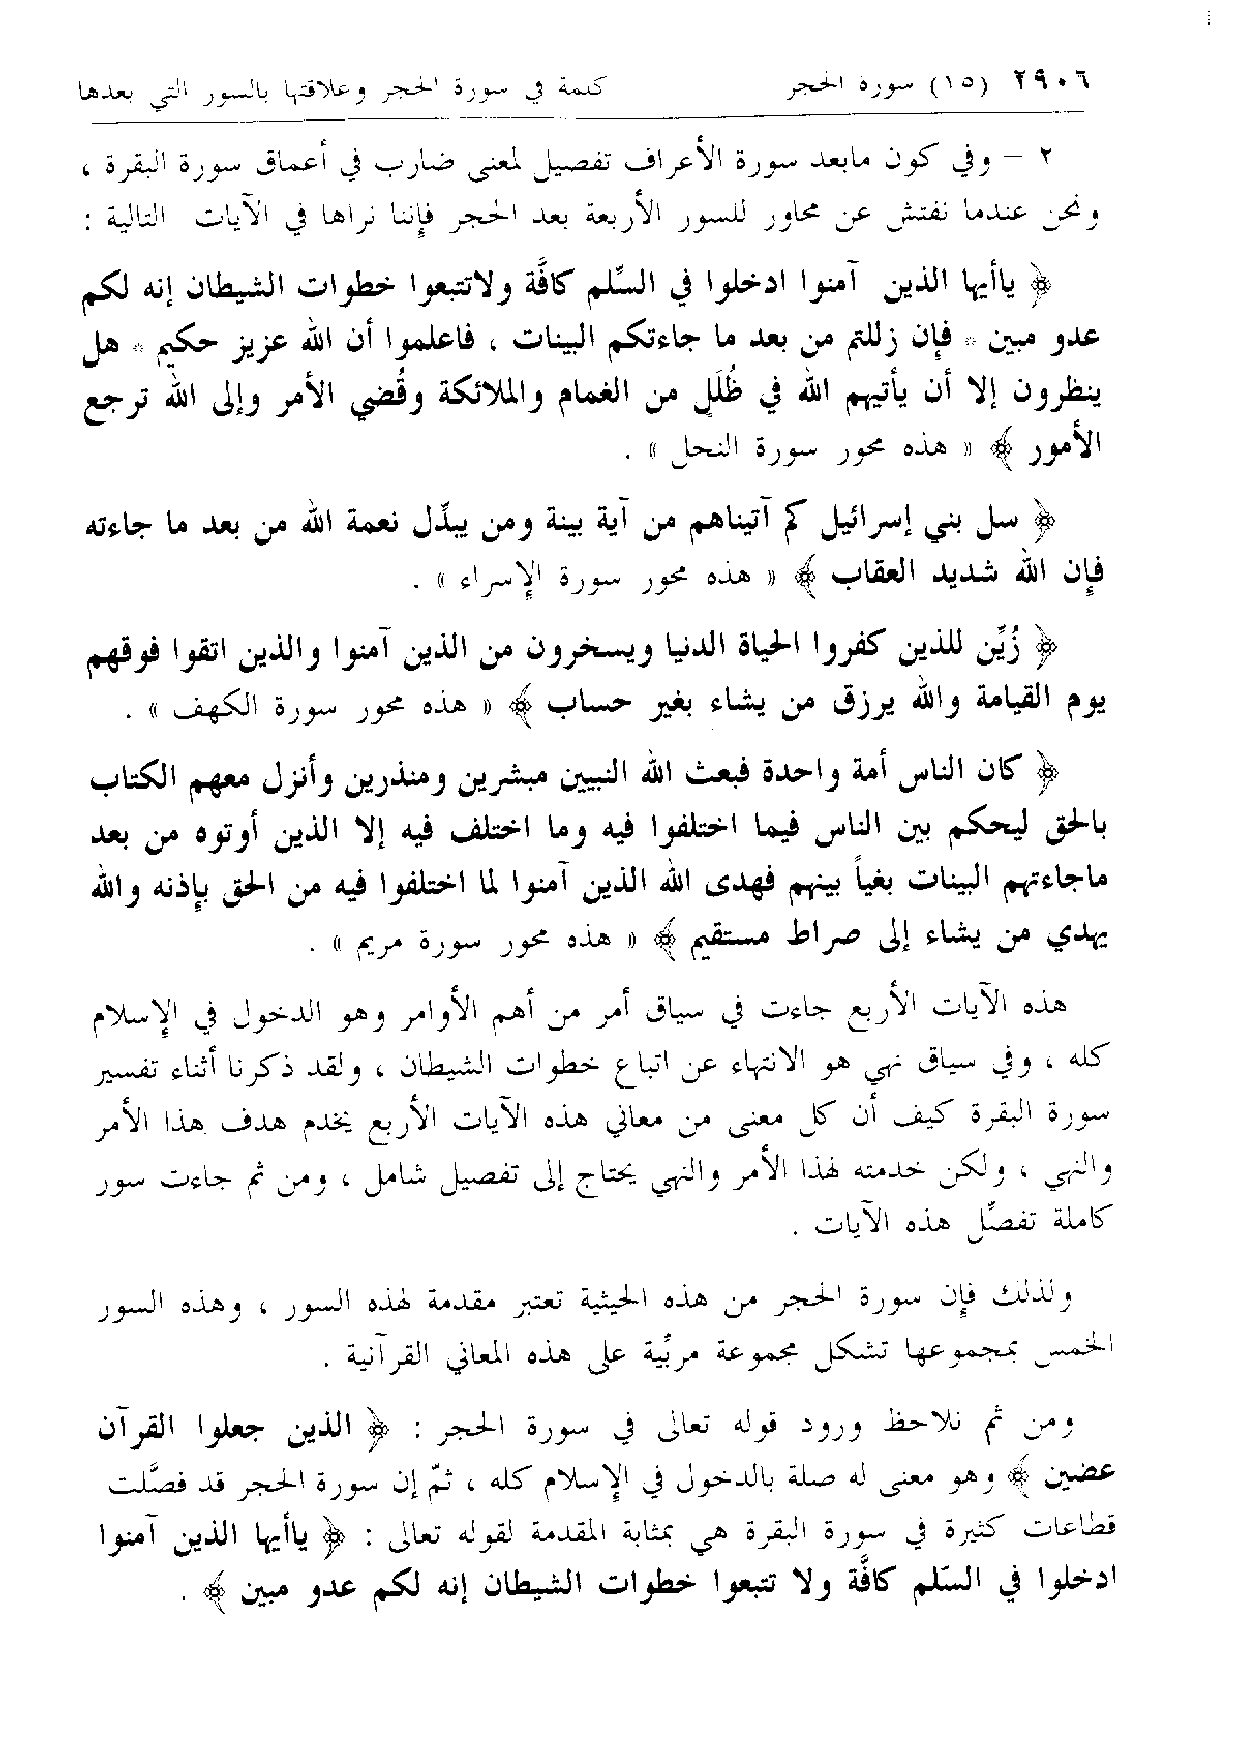 ٢٩٠٦ (١٥) سورة الحجر كلمة في سورة الحجر وعلاقتها بالسور التي بعدها
٢ – وفي كون مابعد سورة الأعراف تفصيل لمعنى ضارب في أعماق سورة البقرة ،
ونحن عندما نفتش عن محاور للسور الأربعة بعد الحجر فإننا نراها في الآيات التالية :
﴿ ياأيها الذين آمنوا ادخلوا في السِّلم كافَّة ولاتتبعوا خطوات الشيطان إنه لكم
عدو مبين * فإن زللتم من بعد ما جاءتكم البينات ، فاعلموا أن الله عزيز حكيم * هل
ينظرون إلا أن يأتيهم الله في ظُلَلٍ من الغمام والملائكة وقُضي الأمر وإلى الله ترجع
الأمور ﴾ « هذه محور سورة النحل » .
﴿ سل بني إسرائيل كم آتيناهم من آية بينة ومن يبدّل نعمة الله من بعد ما جاءته
فإن الله شديد العقاب ﴾ « هذه محور سورة الإسراء » .
﴿ زُيِّن للذين كفروا الحياة الدنيا ويسخرون من الذين آمنوا والذين اتقوا فوقهم
يوم القيامة والله يرزق من يشاء بغير حساب ﴾ « هذه محور سورة الكهف » .
﴿ كان الناس أمة واحدة فبعث الله النبيين مبشرين ومنذرين وأنزل معهم الكتاب
بالحق ليحكم بين الناس فيما اختلفوا فيه وما اختلف فيه إلا الذين أوتوه من بعد
ماجاءتهم البينات بغياً بينهم فهدى الله الذين آمنوا لما اختلفوا فيه من الحق بإذنه والله
يهدي من يشاء إلى صراط مستقيم ﴾ « هذه محور سورة مريم » .
هذه الآيات الأربع جاءت في سياق أمر من أهم الأوامر وهو الدخول في الإسلام
كله ، وفي سياق نهي هو الانتهاء عن اتباع خطوات الشيطان ، ولقد ذكرنا أثناء تفسير
سورة البقرة كيف أن كل معنى من معاني هذه الآيات الأربع يخدم هدف هذا الأمر
والنهي ، ولكن خدمته لهذا الأمر والنهي يحتاج إلى تفصيل شامل ، ومن ثم جاءت سور
كاملة تفصِّل هذه الآيات .
ولذلك فإن سورة الحجر من هذه الحيثية تعتبر مقدمة لهذه السور ، وهذه السور
الخمس بمجموعها تشكل مجموعة مربِّية على هذه المعاني القرآنية .
ومن ثم نلاحظ ورود قوله تعالى في سورة الحجر : ﴿ الذين جعلوا القرآن
عضين ﴾ وهو معنى له صلة بالدخول في الإسلام كله ، ثمّ إن سورة الحجر قد فصَّلت
قطاعات كثيرة في سورة البقرة هي بمثابة المقدمة لقوله تعالى : ﴿ ياأيها الذين آمنوا
ادخلوا في السّلم كافَّة ولا تتبعوا خطوات الشيطان إنه لكم عدو مبين ﴾ .